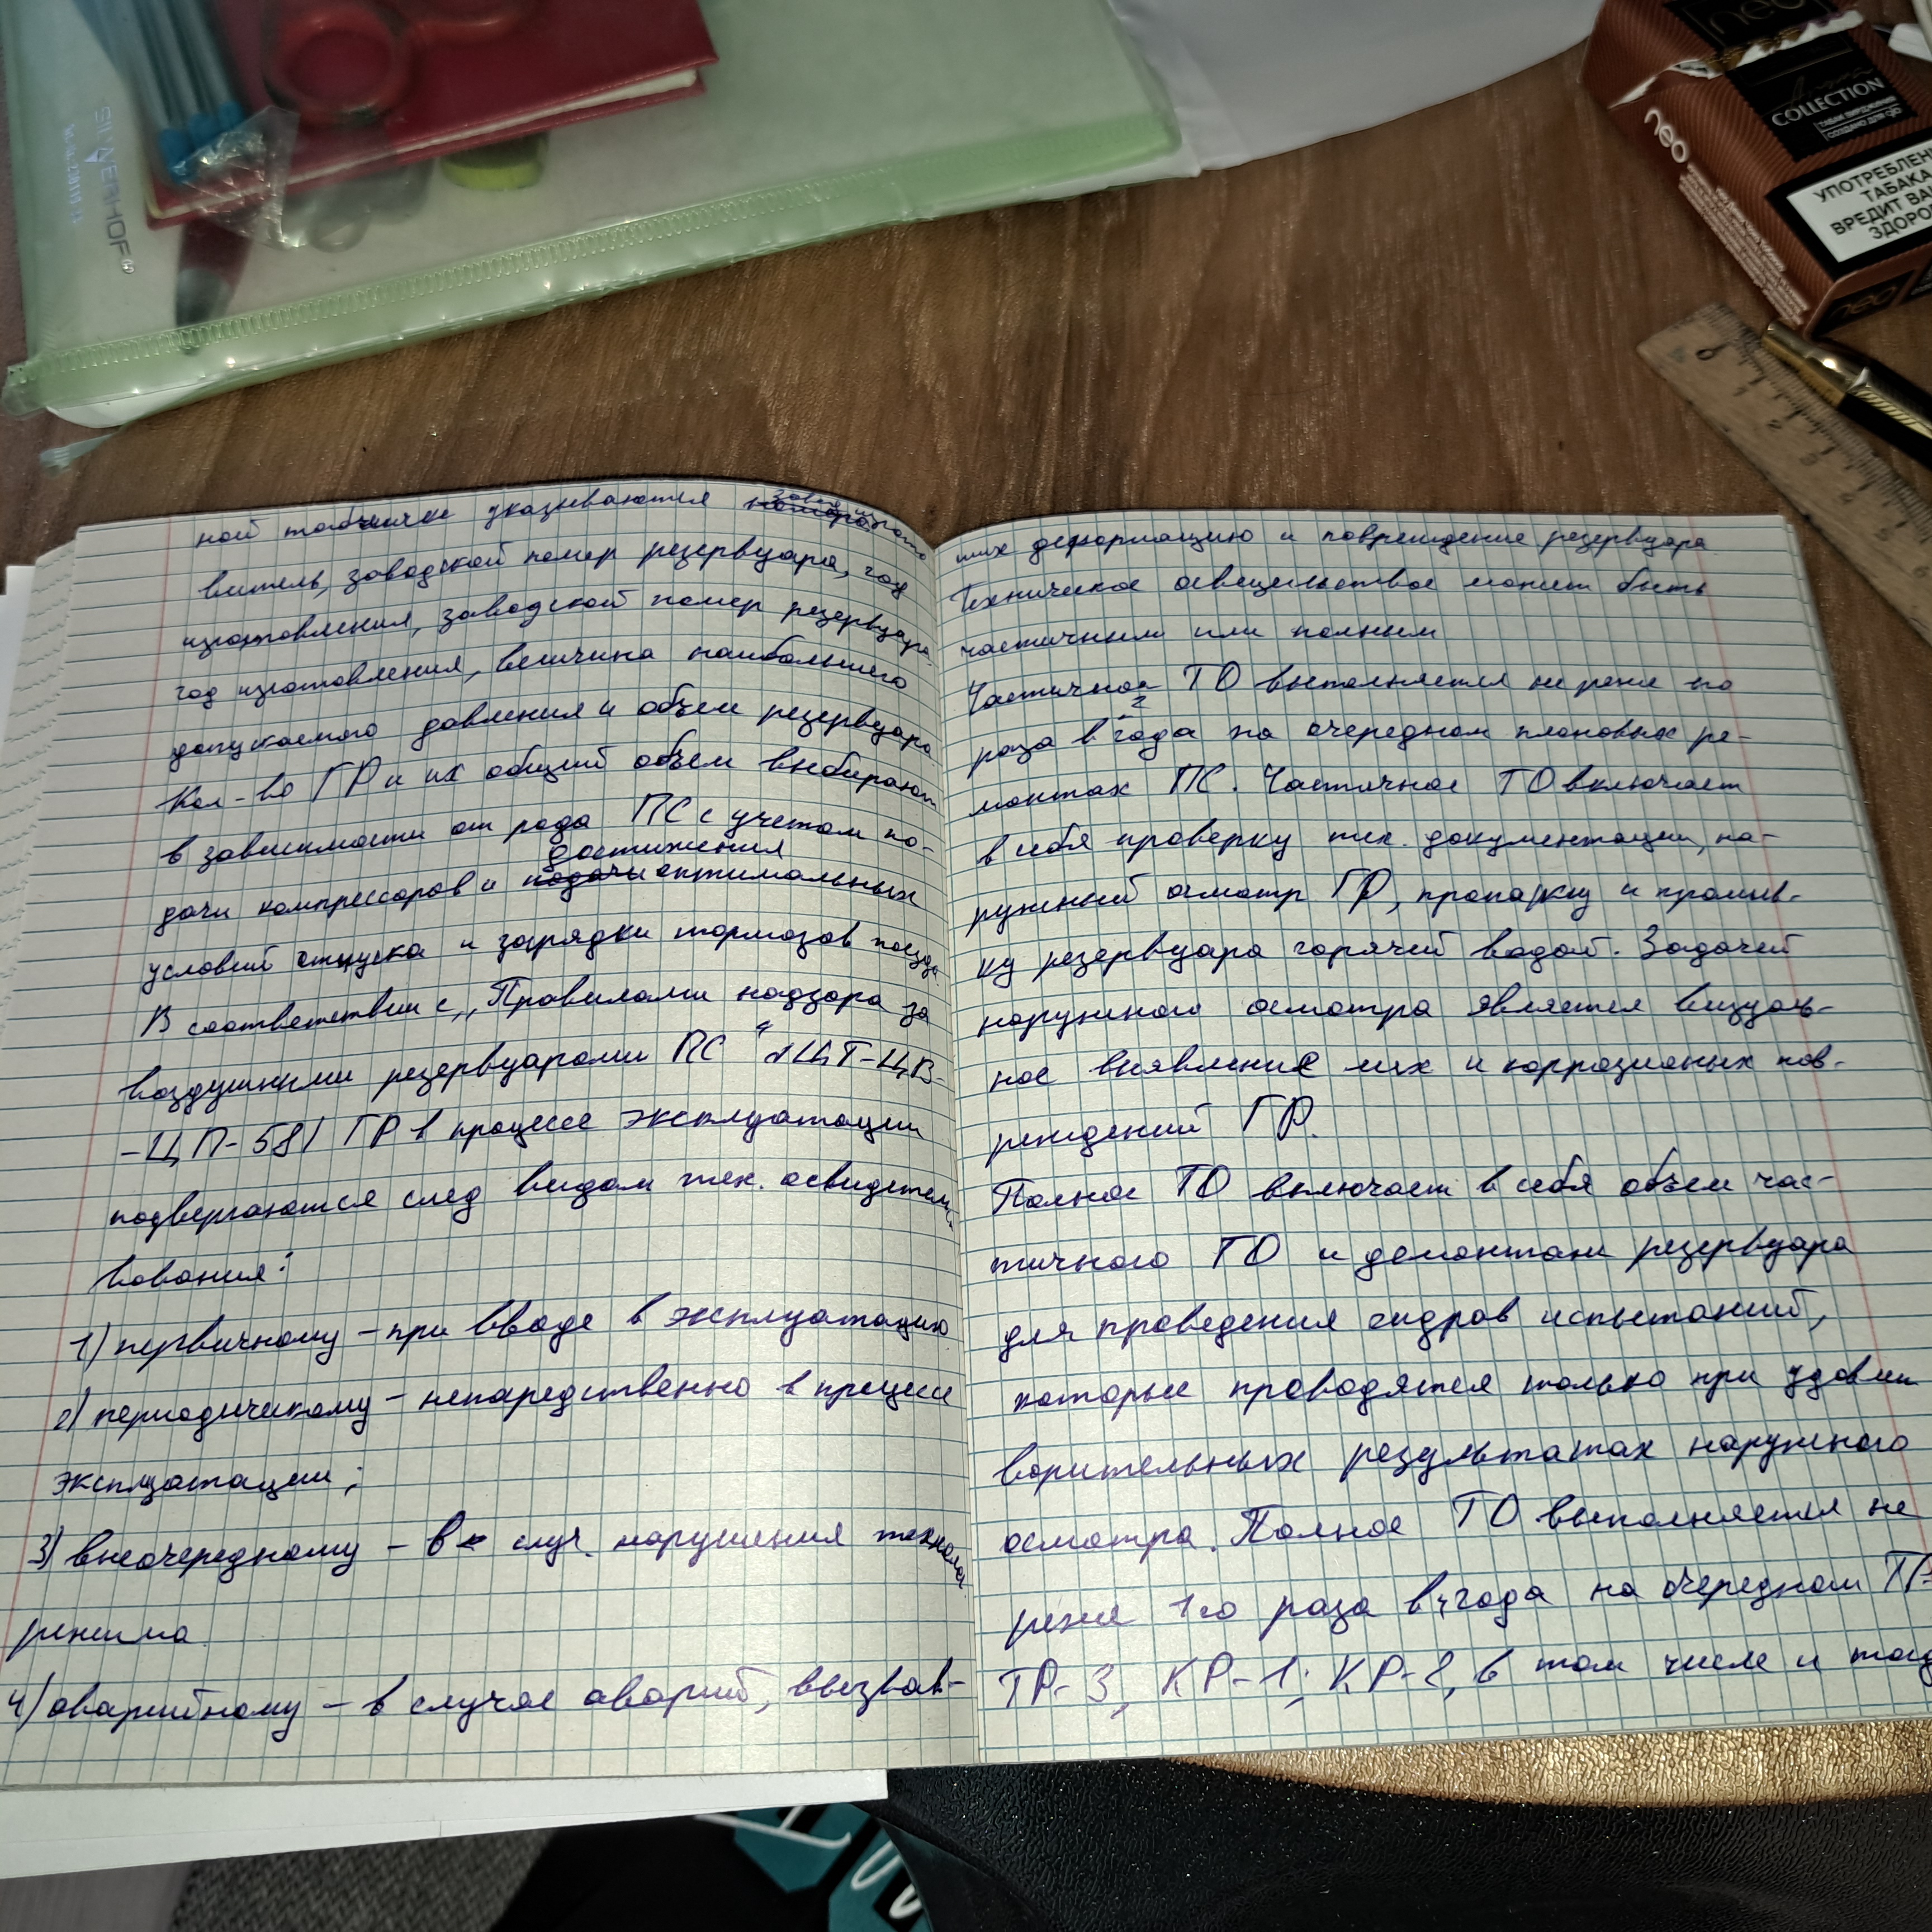 SILWERHOF
neo
neo
COLLECTION
УПОТРЕБЛЕНИ
ТАБАКА
ВРЕДИТ ВАШ
ЗДОРО
neo
ной табличке указываются завод изгото
витель, заводской номер резервуара, год
изготовления, заводской номер резервуара,
год изготовления, величина наибольшего
допускаемого давления и объем резервуара
Кол-во ГР и их общий объем выбирают
в зависимости от рода ПС с учетом по-
дачи компрессоров и достижения оптимальных
условий отпуска и зарядки тормозов поезда.
В соответствии с „Правилами надзора за
воздушными резервуарами ПС“ ЦТ-ЦВ-
-ЦП-581 ГР в процессе эксплуатации
подвергаются след видам тех. освидетель-
вования:
1) первичному - при вводе в эксплуатацию
2) периодичикому - непаредственно в процессе
эксплуатации;
3) внеочередному - в случ. нарушения технолог
режима
4) аварийному - в случае аварий, вызвав-
ших деформацию и повреждение резервуара
Техническое освещельство может быть
частичным или полным
Частичное ТО выполняется не реже 1го
раза в 2 года на очередном плановых ре-
монтах ПС. Частичное ТО включает
в себя проверку тех. документации, на-
ружный осмотр ГР, пропарку и промыв-
ку резервуара горячей водой. Задачей
наружного осмотра является визуаль-
ное выявление мех и коррозионых пов-
реждений ГР.
Полное ТО включает в себя объем час-
тичного ТО и демонтаж резервуара
для проведения гидров испытаний,
которые проводятся только при удовлет
ворительных результатах наружного
осмотра. Полное ТО выполняется не
реже 1го раза в 4 года на очередном ТР-
ТР-3, КР-1; КР-2, в том числе и тогд